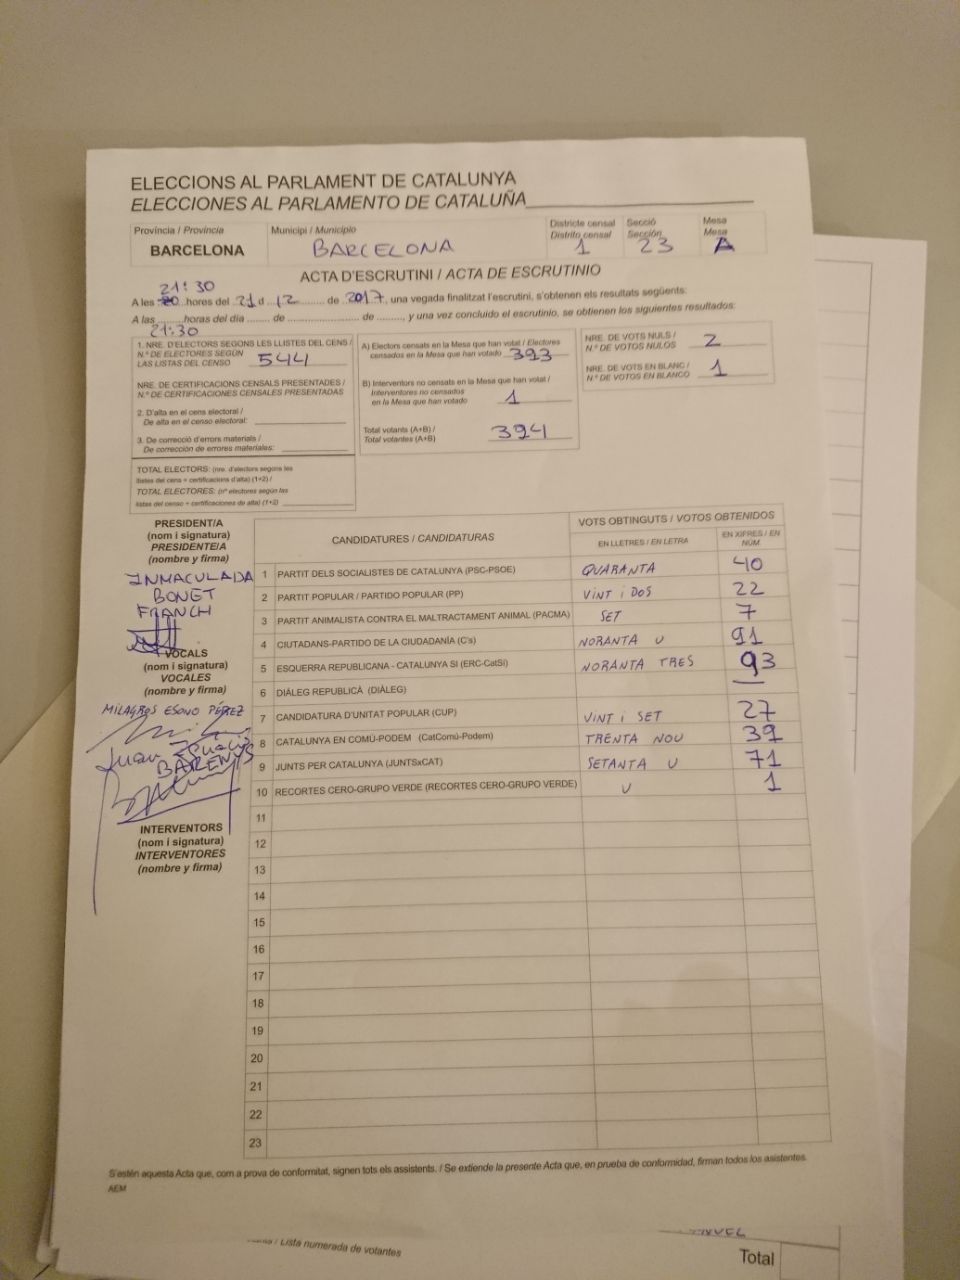 ELECCIONS AL PARLAMENT DE CATALUNYA
ELECCIONES AL PARLAMENTO DE CATALUÑA
Província / Provincia
BARCELONA
Municipi / Municipio
BARCELONA
Districte censal
Distrito censal
1
Secció
Sección
23
Mesa
Mesa
A
ACTA D'ESCRUTINI / ACTA DE ESCRUTINIO
21:30
A les 20 hores del 21 d 12 de 2017, una vegada finalitzat l'escrutini, s'obtenen els resultats següents:
A las ........ horas del día ....... de ........................ de ........, y una vez concluido el escrutinio, se obtienen los siguientes resultados:
21:30
1. NRE. D'ELECTORS SEGONS LES LLISTES DEL CENS /
N.º DE ELECTORES SEGÚN
LAS LISTAS DEL CENSO 544
NRE. DE CERTIFICACIONS CENSALS PRESENTADES /
N.º DE CERTIFICACIONES CENSALES PRESENTADAS
2. D'alta en el cens electoral /
De alta en el censo electoral:
3. De correcció d'errors materials /
De corrección de errores materiales:
TOTAL ELECTORS: (nre. d'electors segons les
llistes del cens + certificacions d'alta) (1+2) /
TOTAL ELECTORES: (nº electores según las
listas del censo + certificaciones de alta) (1+2)
A) Electors censats en la Mesa que han votat / Electores
censados en la Mesa que han votado 393
B) Interventors no censats en la Mesa que han votat /
Interventores no censados
en la Mesa que han votado 1
Total votants (A+B) /
Total votantes (A+B) 394
NRE. DE VOTS NULS /
N.º DE VOTOS NULOS 2
NRE. DE VOTS EN BLANC /
N.º DE VOTOS EN BLANCO 1
PRESIDENT/A
(nom i signatura)
PRESIDENTE/A
(nombre y firma)
INMACULADA
BONET
FRANCH
VOCALS
(nom i signatura)
VOCALES
(nombre y firma)
MILAGROS ESONO PÉREZ
Juan Ignacio
BARENYS
INTERVENTORS
(nom i signatura)
INTERVENTORES
(nombre y firma)
CANDIDATURES / CANDIDATURAS
VOTS OBTINGUTS / VOTOS OBTENIDOS
EN LLETRES / EN LETRA
EN XIFRES / EN NÚM.
1 PARTIT DELS SOCIALISTES DE CATALUNYA (PSC-PSOE) QUARANTA 40
2 PARTIT POPULAR / PARTIDO POPULAR (PP) VINT i DOS 22
3 PARTIT ANIMALISTA CONTRA EL MALTRACTAMENT ANIMAL (PACMA) SET 7
4 CIUTADANS-PARTIDO DE LA CIUDADANÍA (C's) NORANTA U 91
5 ESQUERRA REPUBLICANA - CATALUNYA SI (ERC-CatSí) NORANTA TRES 93
6 DIÀLEG REPUBLICÀ (DIÀLEG) —
7 CANDIDATURA D'UNITAT POPULAR (CUP) VINT i SET 27
8 CATALUNYA EN COMÚ-PODEM (CatComú-Podem) TRENTA NOU 39
9 JUNTS PER CATALUNYA (JUNTSxCAT) SETANTA U 71
10 RECORTES CERO-GRUPO VERDE (RECORTES CERO-GRUPO VERDE) U 1
11
12
13
14
15
16
17
18
19
20
21
22
23
S'estén aquesta Acta que, com a prova de conformitat, signen tots els assistents. / Se extiende la presente Acta que, en prueba de conformidad, firman todos los asistentes.
AEM
/ Lista numerada de votantes
Total